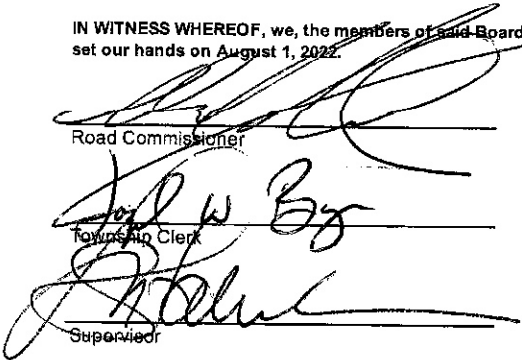 IN WITNESS WHEREOF, we, the members of said Board
set our hands on August 1, 2022.
Road Commissioner
W
Township Clerk
Supervisor